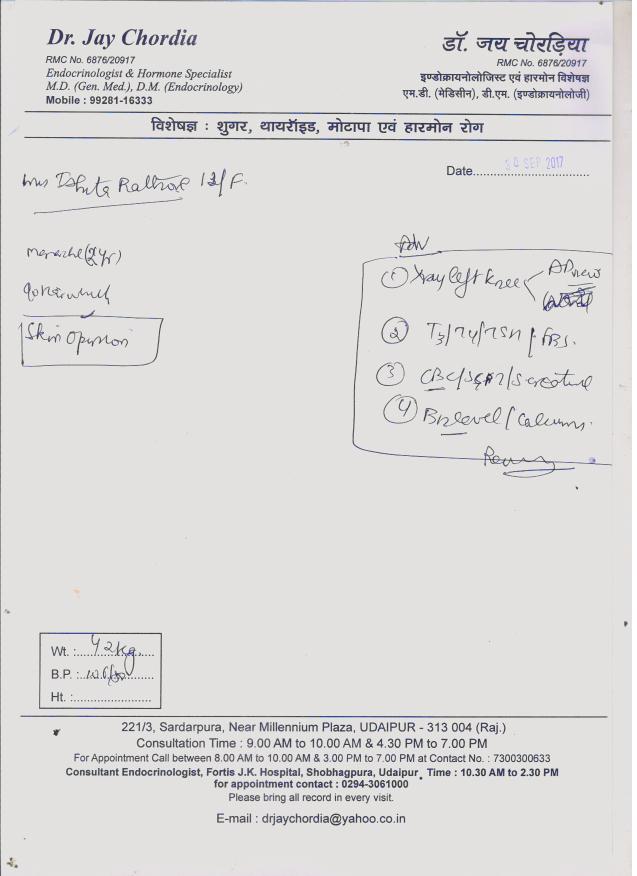 Dr. Jay Chordia
RMC No. 6876/20917
Endocrinologist & Hormone Specialist
M.D. (Gen. Med.), D.M. (Endocrinology)
Mobile : 99281-16333
डॉ. जय चोरड़िया
RMC No. 6876/20917
इण्डोक्रायनोलोजिस्ट एवं हारमोन विशेषज्ञ
एम.डी. (मेडिसीन), डी.एम. (इण्डोक्रायनोलोजी)
विशेषज्ञ : शुगर, थायरॉइड, मोटापा एवं हारमोन रोग
Date 30 SEP 2017
Rathore 13/F.
Skin Opinion
Adv
① Xray left knee AP view
② T3/T4/TSH / FBS.
③ CBC/SGPT/S creatine
④ B12 level / Calcium.
Wt. : 42kg
B.P. :
Ht. :
221/3, Sardarpura, Near Millennium Plaza, UDAIPUR - 313 004 (Raj.)
Consultation Time : 9.00 AM to 10.00 AM & 4.30 PM to 7.00 PM
For Appointment Call between 8.00 AM to 10.00 AM & 3.00 PM to 7.00 PM at Contact No. : 7300300633
Consultant Endocrinologist, Fortis J.K. Hospital, Shobhagpura, Udaipur, Time : 10.30 AM to 2.30 PM
for appointment contact : 0294-3061000
Please bring all record in every visit.
E-mail : drjaychordia@yahoo.co.in